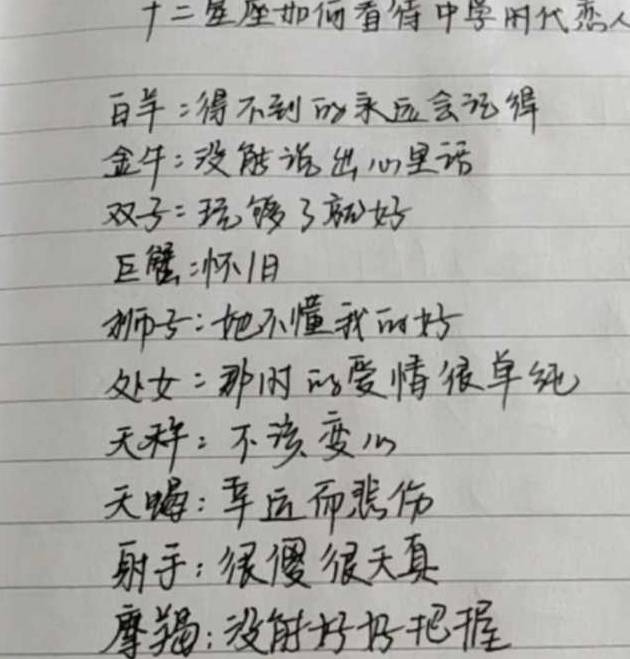 十二星座如何看待中学时代恋人
白羊:得不到的永远会记得
金牛:没能说出心里话
双子:玩够了就好
巨蟹:怀旧
狮子:她不懂我的好
处女:那时的爱情很单纯
天秤:不该变心
天蝎:幸运而悲伤
射手:很傻很天真
摩羯:没能好好把握